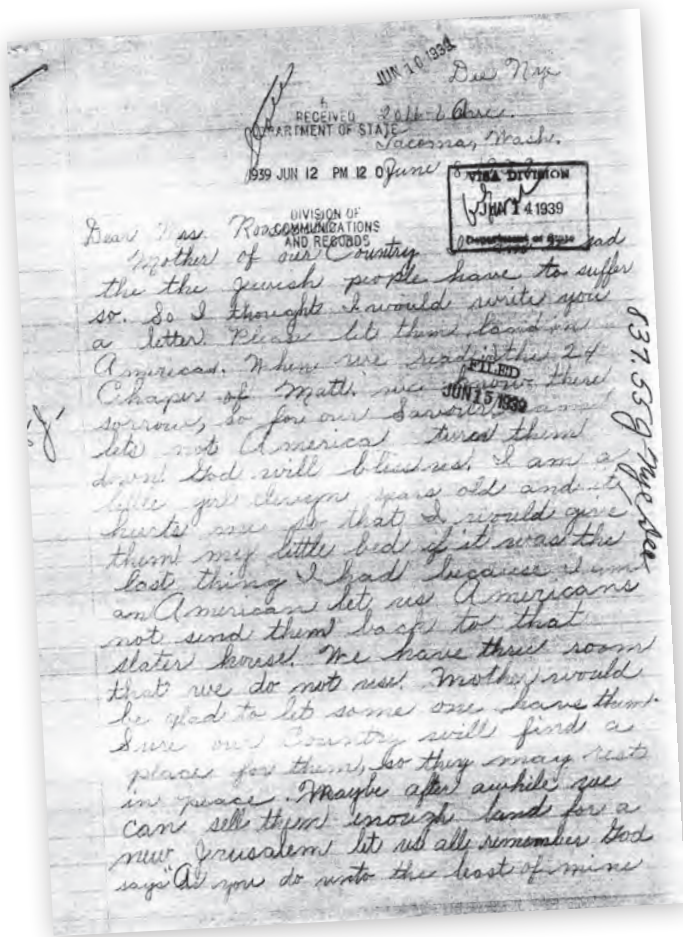 JUN 10 1939
Dee Nye
RECEIVED
DEPARTMENT OF STATE
Tacoma, Wash.
1939 JUN 12 PM 12 0
June 8
VISA DIVISION
JUN 14 1939
Department of State
DIVISION OF
COMMUNICATIONS
AND RECORDS
Dear Mrs. Roosevelt
Mother of our Country
the the Jewish people have to suffer
so. So I thought I would write you
a letter. Please let them land in
America. When we read in the 24
Chaper of Matt. we know there
FILED
JUN 15 1939
sorrow, so for our Saviours
lets not America turn them
down God will bless us. I am a
little girl eleven years old and it
hurts me so that I would give
them my little bed if it was the
last thing I had because I am
an American let us Americans
not send them back to that
slater house. We have three room
that we do not use. Mother would
be glad to let some one have them.
Sure our Country will find a
place for them, so they may rest
in peace. Maybe after awhile we
can sell them enough land for a
new Jerusalem let us all remember God
says "As you do unto the least of mine
837.55J